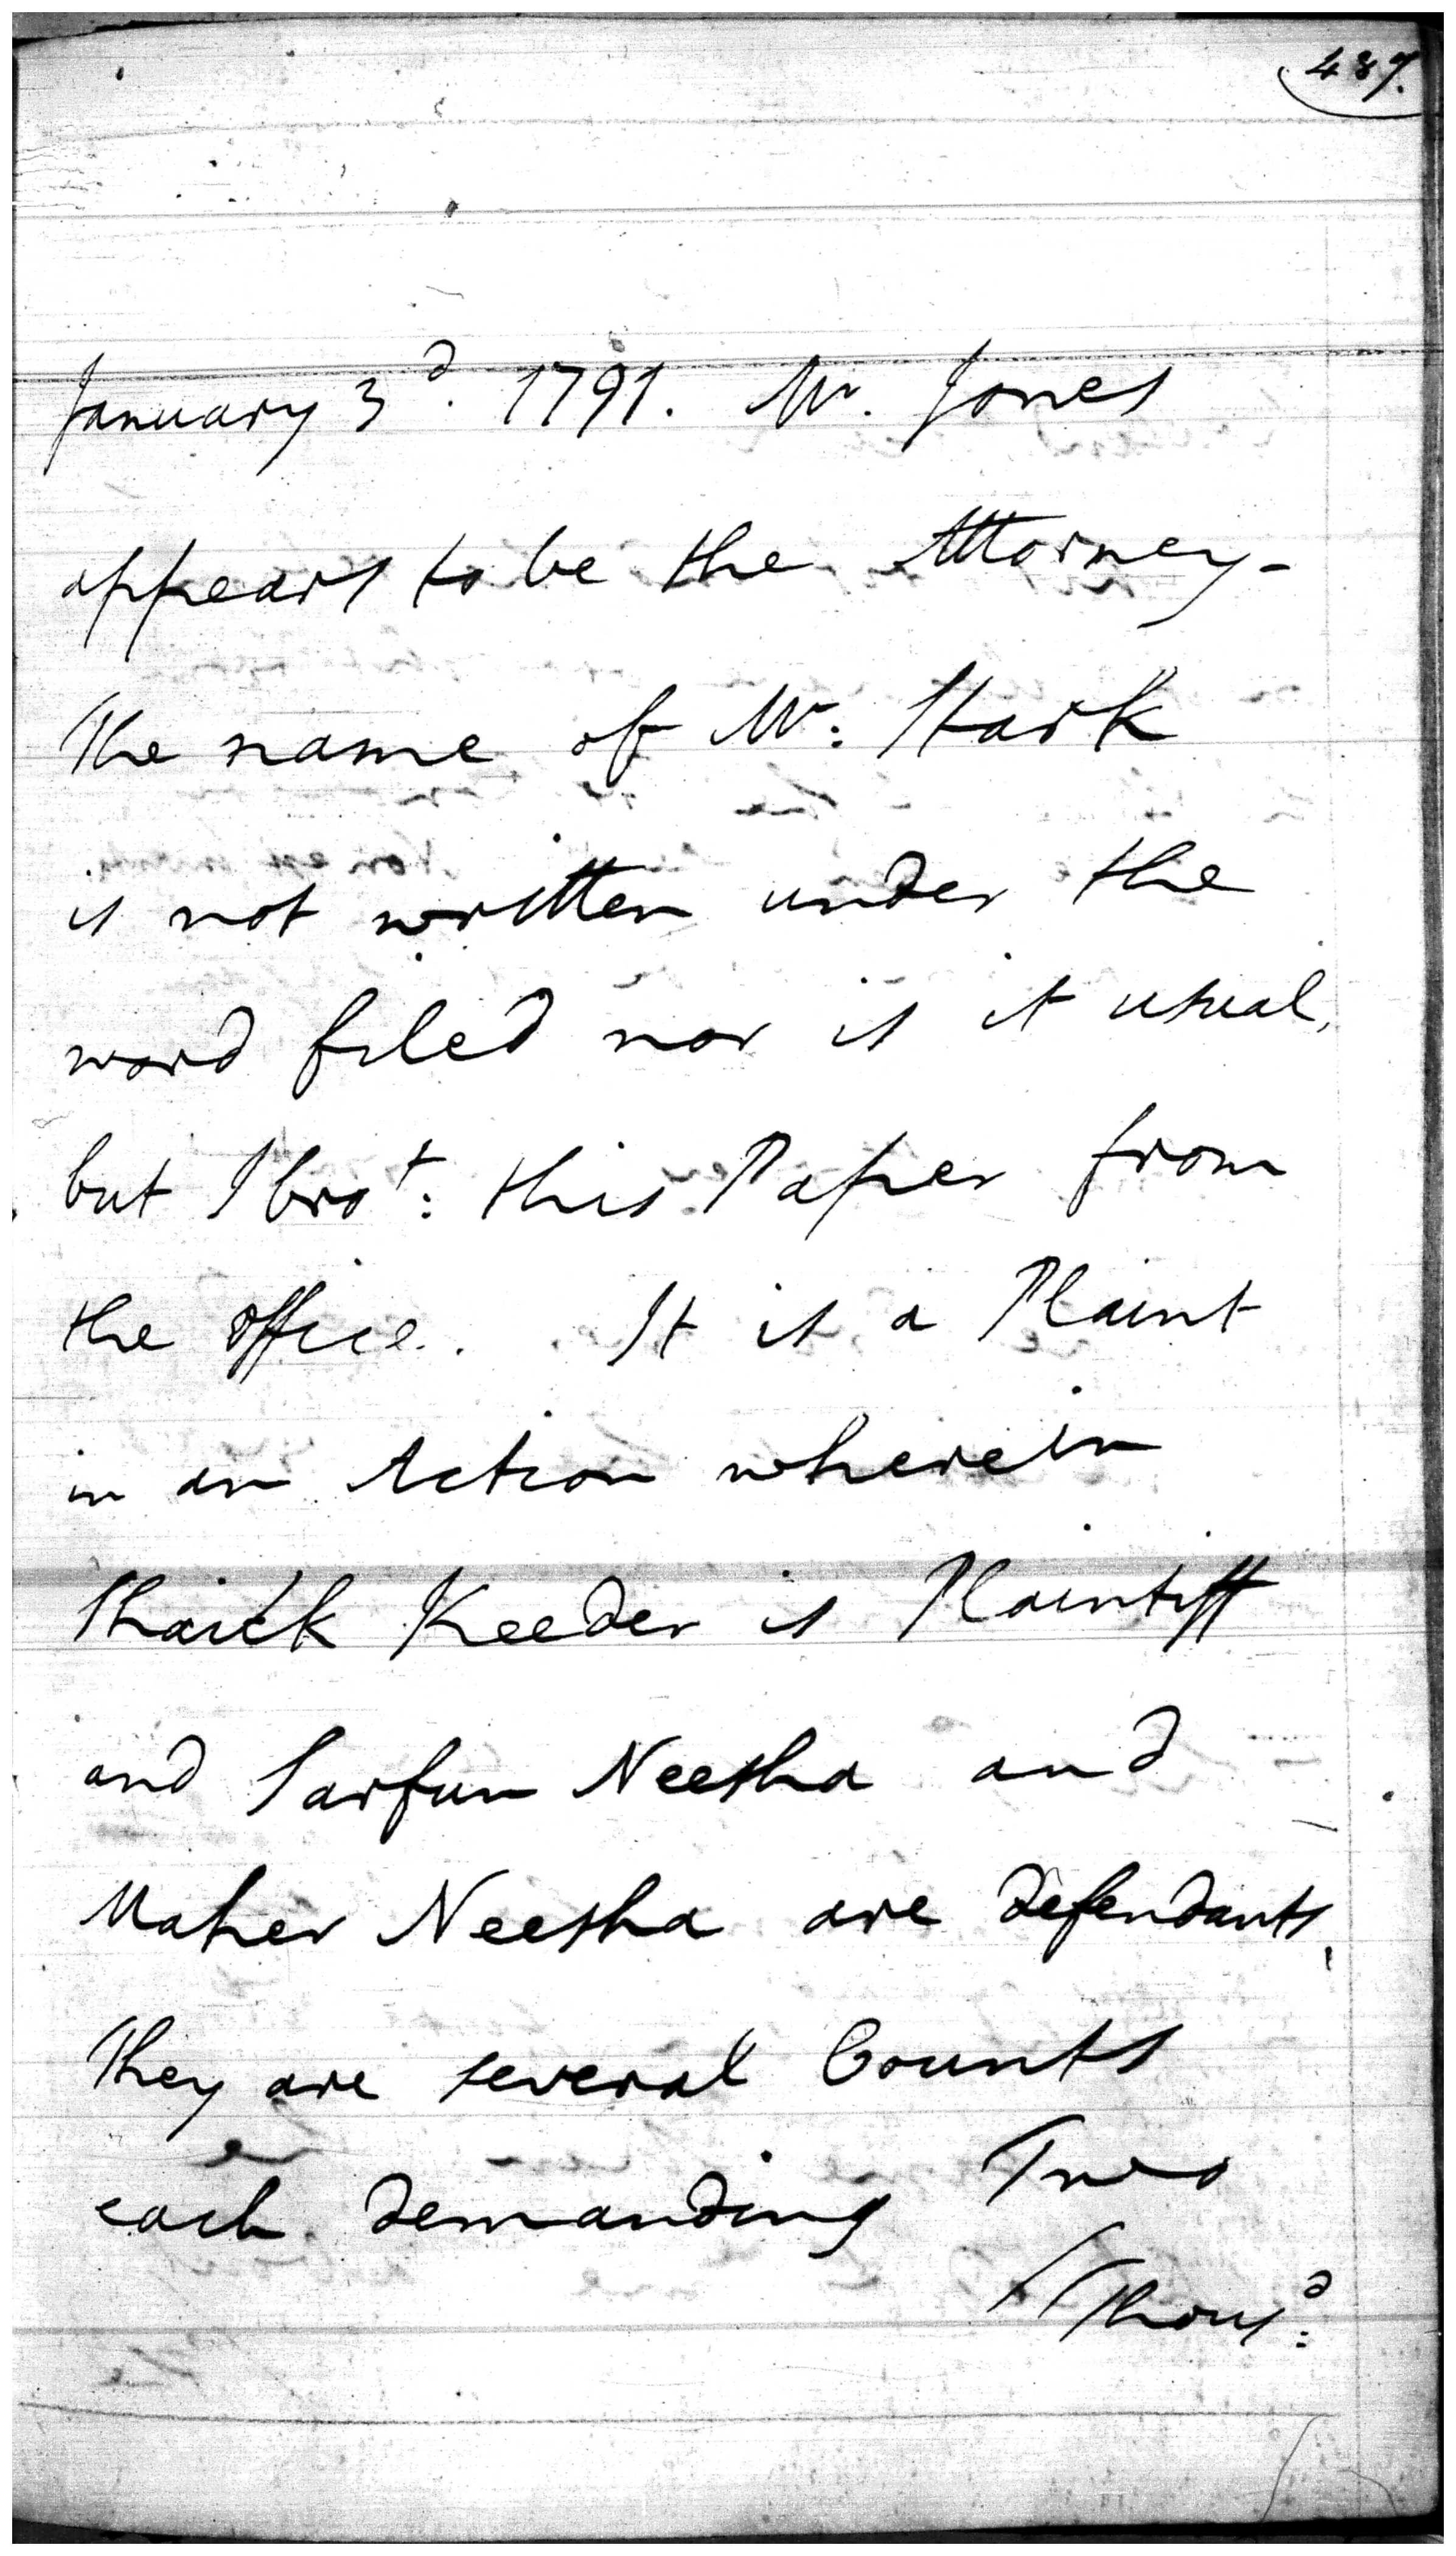 487.
January 3d. 1791. Mr. Jones
appears to be the Attorney-
The name of Mr: Stark
is not written under the
word filed nor is it usual,
but I brot: this Paper from
the office. It is a Plaint
in an Action wherein
Shaick Keeder is Plaintiff
and Sarfun Neesha and
Maher Neesha are Defendants,
They are several Counts
each demanding Two
Thousd: